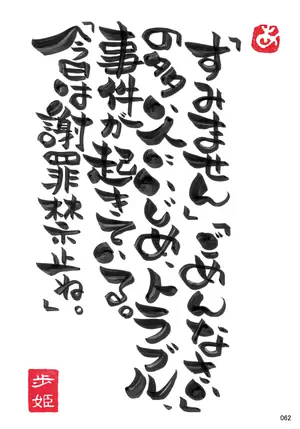 あ
「すみません」「ごめんなさい」
の多い人にいじめトラブル、
事件が起きている。
「今日は謝罪禁止ね。」
歩姫
062